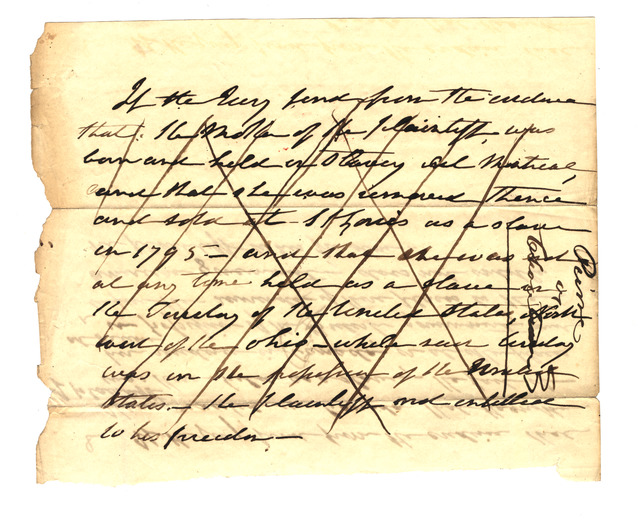 If the Jury find from the evidence
that the Mother of the Plaintiff, was
born and held in Slavery at Montreal,
and that she was removed thence
and sold at St Louis as a slave
in 1795 – and that she was not
at any time held as a slave in
the Territory of the United States, North
west of the Ohio – while said Territory
was in the possession of the United
States. – the plaintiff not entitled
to his freedom –
Pierre
vs